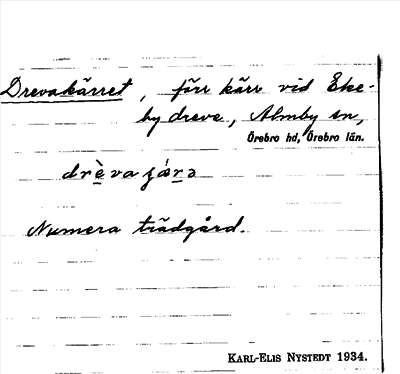 Drevakärret, förr kärr vid Eke-
by dreve, Almby sn,
Örebro hd, Örebro län.
drèva
Numera trädgård.
KARL-ELIS NYSTEDT 1934.